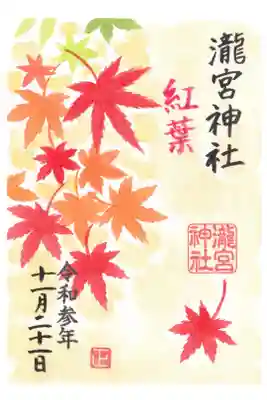 瀧宮神社
紅葉
瀧宮
神社
令和参年
十一月二十一日